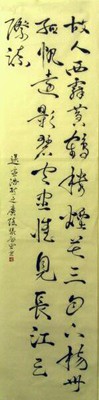 故人西辭黄鶴樓煙花三月下揚州
孤帆遠影碧空盡惟見長江天
際流
送孟浩然之廣陵